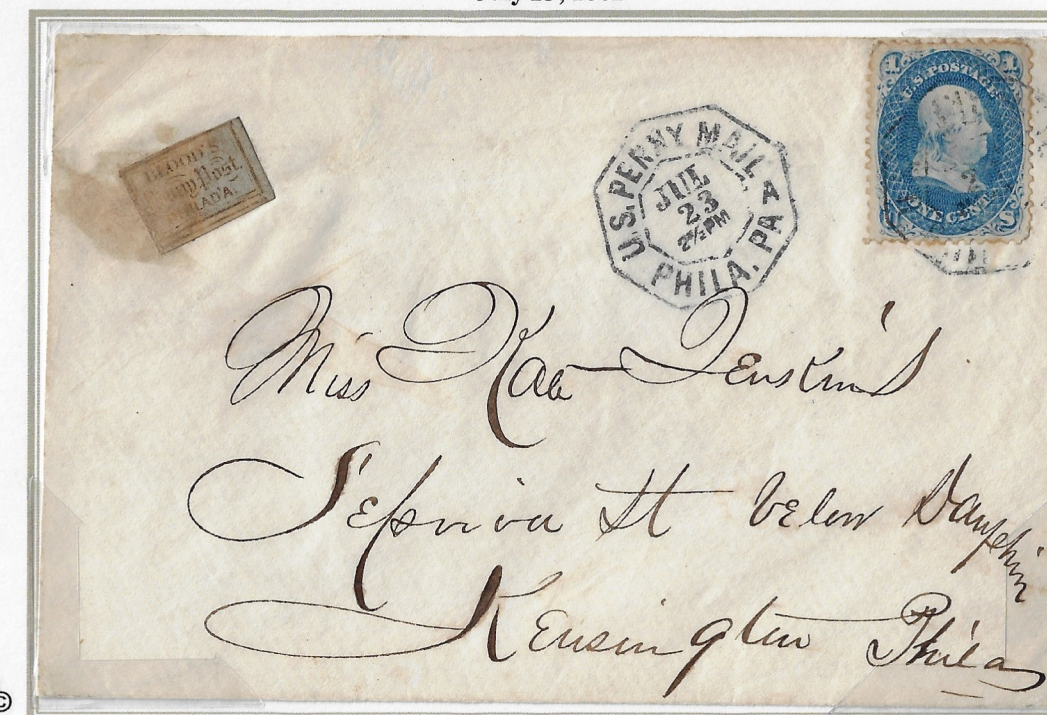 BLOOD'S
Post
LAD'A.
U.S. PENNY MAIL
PHILA. PA
JUL
23
2½ PM
1 1
U.S. POSTAGE
ONE CENT
Miss Kate Jenkins
St below Dauphin
Kensington Phila
©